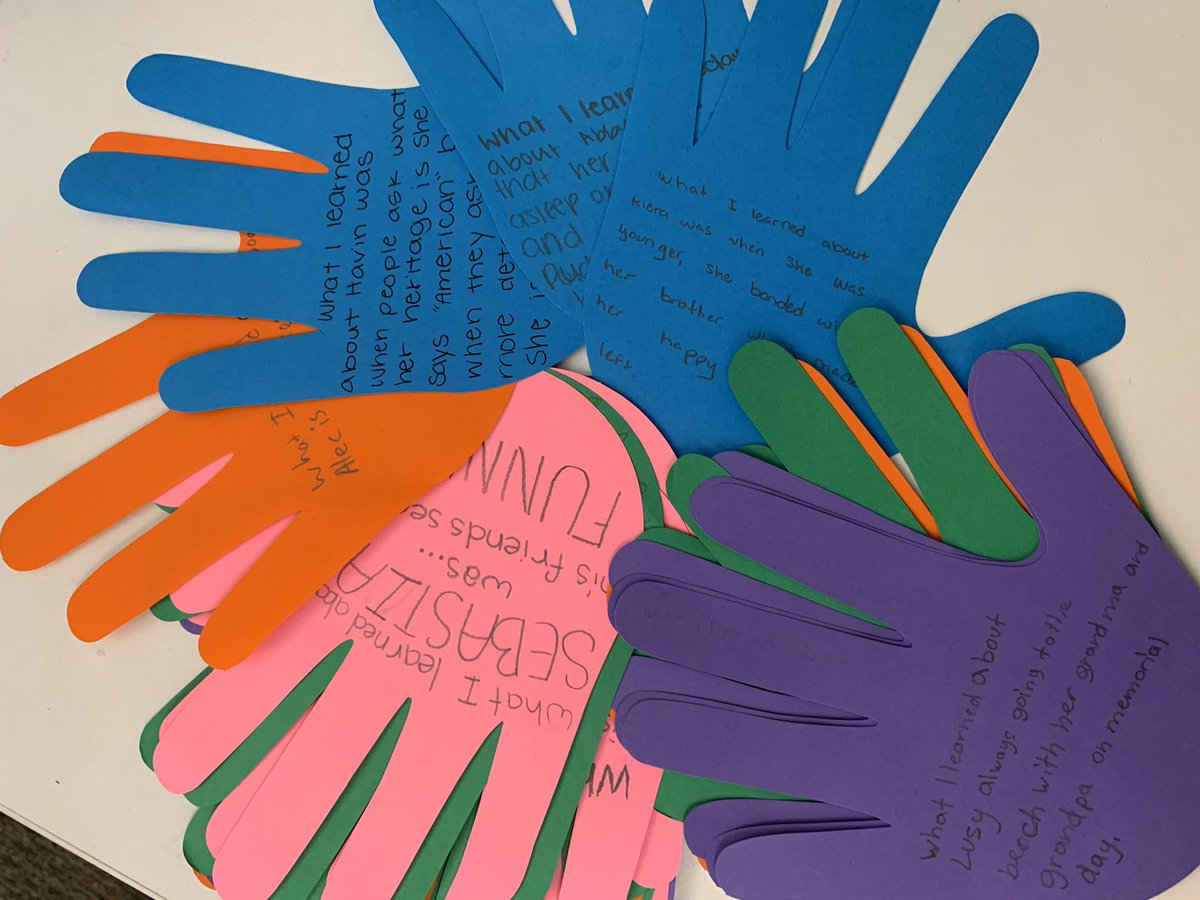 What I learned
about Havin was
when people ask what
her heritage is she
says "American" b
when they ask
more det
she i
What I lear
about
that her
asleep o
and
What I learned about
kiera was when she was
younger, she bonded wi
her brother
her happy
left.
What I
Alec is
What I learned abo
SEBASTIA
was...
his friends se
FUNN
Wh
What I learned about
Lusy always going to the
beech with her grandma and
grandpa on memorial
day.